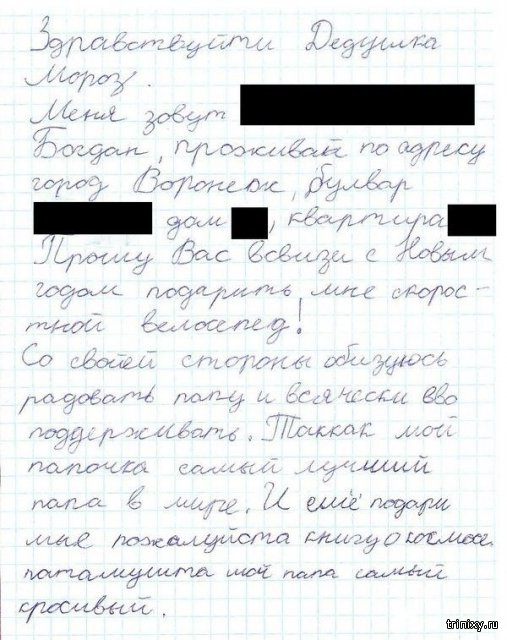 Здравствуйти Дедушка
Мороз.
Меня зовут
Богдан, проживаю по адресу
город Воронеж, булвар
дом , квартира
Прошу Вас всвизи с Новым
годом подарить мне скорос-
тной велосепед!
Со своей стороны обизуюсь
радовать папу и всячески ево
поддерживать. Таккак мой
папочка самый лучший
папа в мире. И ещё подари
мне пожалуйста книгу о космосе
патамушта мой папа самый
кросивый.
trinixy.ru